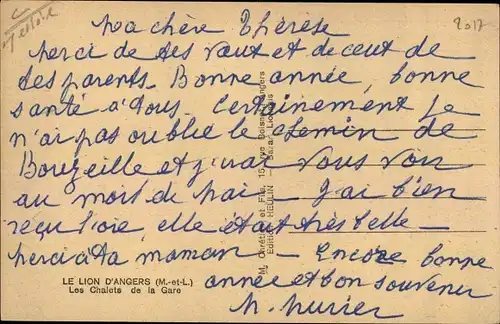 Ma chère Thérèse
Merci de tes vœux et de ceux de
tes parents. Bonne année, bonne
santé à tous, Certainement je
n'ai pas oublié le chemin de
Bouzeille et j'irai vous voir
au mois de mai - J'ai bien
reçu l'oie, elle était très belle -
Merci à ta maman - Encore bonne
année et bon souvenir
LE LION D'ANGERS (M.-et-L.)
Les Chalets de la Gare
2017